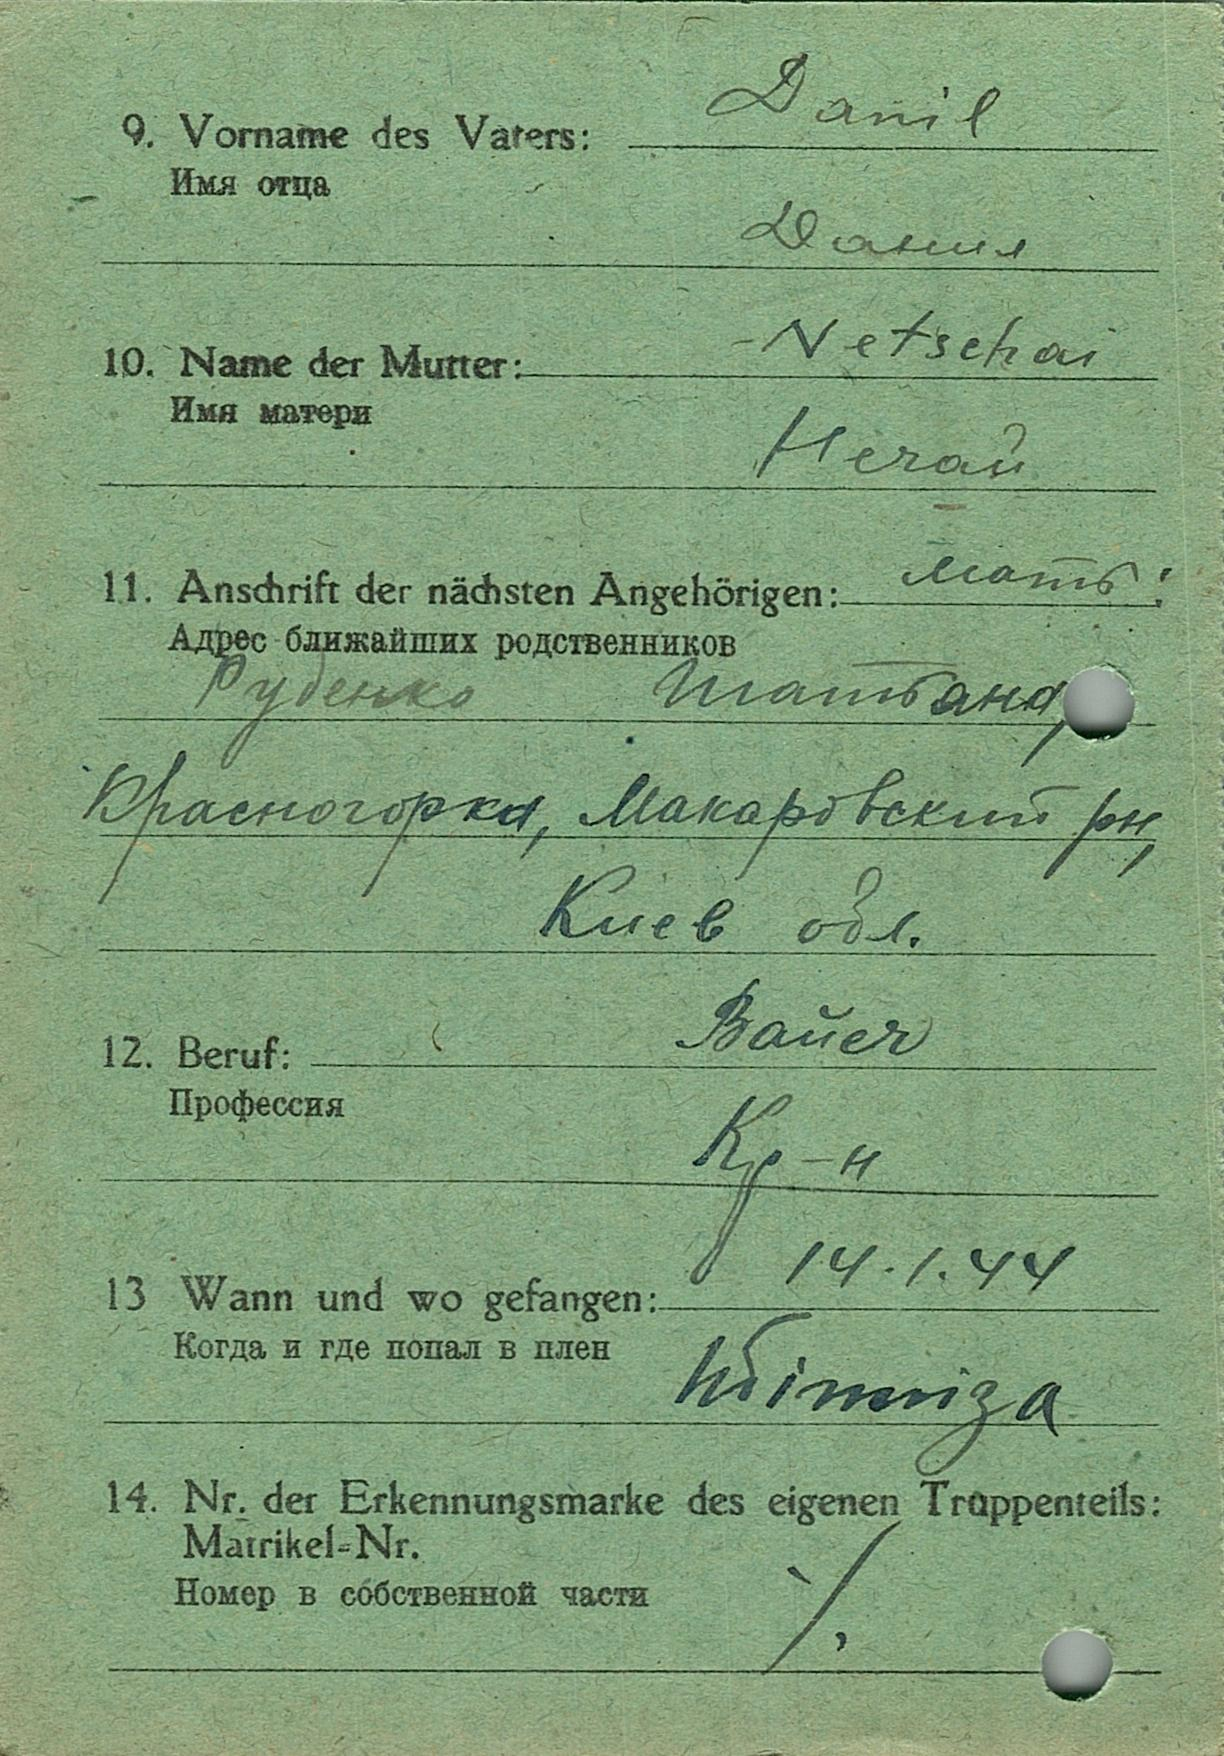 9. Vorname des Vaters: Danil
Имя отца
Данил
10. Name der Mutter: Netschai
Имя матери
Нечай
11. Anschrift der nächsten Angehörigen: мать:
Адрес ближайших родственников
Руденко Татьана,
Красногорка, Макаровский рн,
Киев обл.
12. Beruf: Bauer
Профессия
Кр-н
13 Wann und wo gefangen: 14.1.44
Когда и где попал в плен
14. Nr. der Erkennungsmarke des eigenen Truppenteils:
Matrikel-Nr.
Номер в собственной части
./.